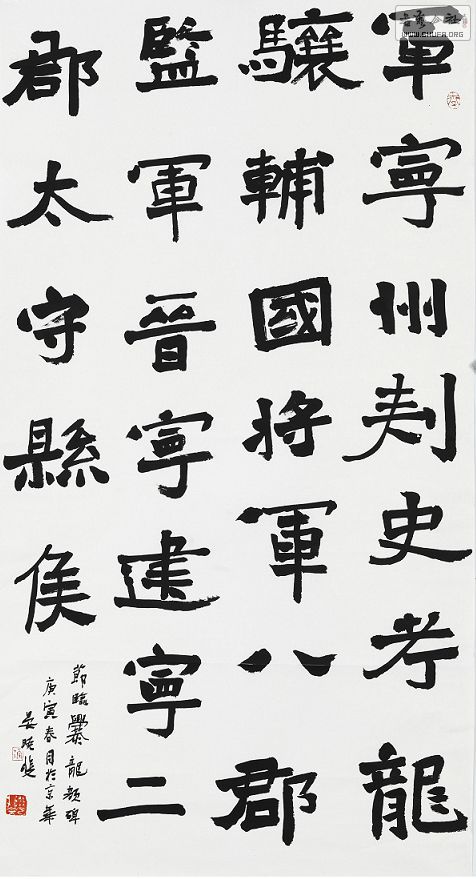 軍寧州刾史考龍
驤輔國将軍八郡
監軍晉寧建寧二
郡太守縣侯
節臨爨龍顏碑
庚寅春月於京華
WWW.SHUFA.ORG